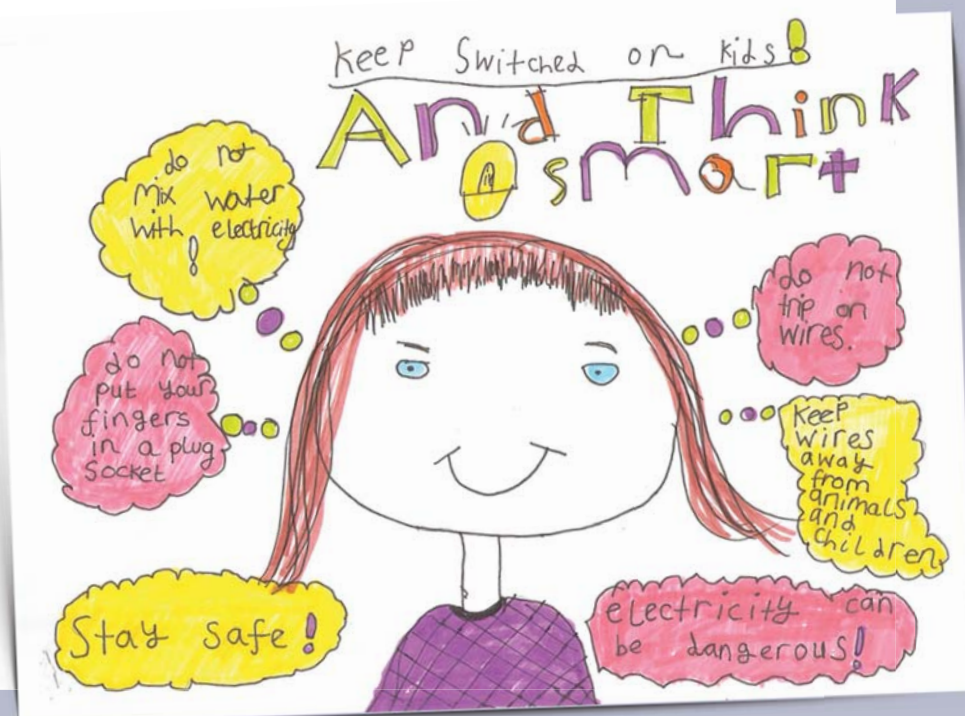 Keep Switched on kids!
And Think
smart
do not
Mix water
with electricity
!
do not
put your
fingers
in a plug
Socket
do not
trip on
wires.
Keep
wires
away
from
animals
and
children
Stay safe!
electricity can
be dangerous!